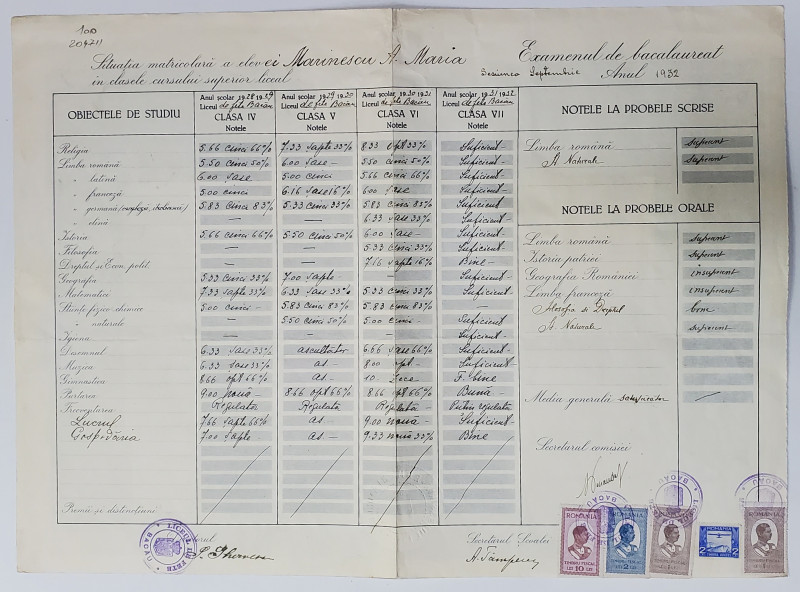 100
20471
Situația matricolară a elevei Marinescu A. Maria
în clasele cursului superior liceal
Examenul de bacalaureat
Sesiunea Septembrie Anul 1932
OBIECTELE DE STUDIU
Anul școlar 1928-1929
Liceul de fete Bacău
CLASA IV
Notele
Anul școlar 1929-1930
Liceul de fete Bacău
CLASA V
Notele
Anul școlar 1930-1931
Liceul de fete Bacău
CLASA VI
Notele
Anul școlar 1931-1932
Liceul de fete Bacău
CLASA VII
Notele
Religia 5.66 cinci 66% 7.33 șapte 33% 8.33 opt 33% Suficient
Limba română 5.50 cinci 50% 6.00 șase 5.50 cinci 50% Suficient
" latină 6.00 șase 5.00 cinci 5.66 cinci 66% Suficient
" franceză 5.00 cinci 6.16 șase 16% 6.00 șase Suficient
" germană 5.83 cinci 83% 5.33 cinci 33% 5.83 cinci 83% Suficient
" elină — — 6.33 șase 33% Suficient
Istoria 5.66 cinci 66% 5.50 cinci 50% 6.00 șase Suficient
Filosofia — — 5.33 cinci 33% Suficient
Dreptul și Econ. polit. — — 7.16 șapte 16% Bine
Geografia 5.33 cinci 33% 7.00 șapte — Suficient
Matematici 7.33 șapte 33% 6.33 șase 33% 5.33 cinci 33% Suficient
Științe fizico-chimice 5.00 cinci 5.83 cinci 83% 5.83 cinci 83% —
" naturale — 5.50 cinci 50% 5.00 cinci Suficient
Igiena Suficient
Desemnul 6.33 șase 33% ascultător 6.66 șase 66% Suficient
Muzica 6.33 șase 33% as 8.00 opt Suficient
Gimnastica 8.66 opt 66% as 10 zece F. bine
Purtarea 9.00 nouă 8.66 opt 66% 8.66 opt 66% Bună
Frecventarea Regulată Regulată Regulată Puțin regulată
Lucrul 7.66 șapte 66% as 9.00 nouă Suficient
Gospodăria 7.00 șapte as 9.33 nouă 33% Bine
Premii și distincțiuni
NOTELE LA PROBELE SCRISE
Limba română suficient
Șt. Naturale suficient
NOTELE LA PROBELE ORALE
Limba română suficient
Istoria patriei suficient
Geografia României insuficient
Limba franceză insuficient
Filosofia și Dreptul bine
Șt. Naturale suficient
Media generală satisfăcător
Secretarul comisiei
Secretarul Școalei
LICEUL DE FETE
BACĂU
ROMANIA
TIMBRU FISCAL
LEI 10 LEI
ROMANIA
TIMBRU FISCAL
2 LEI
ROMANIA
TIMBRU FISCAL
2 2
ROMANIA
TIMBRU FISCAL
BACĂU